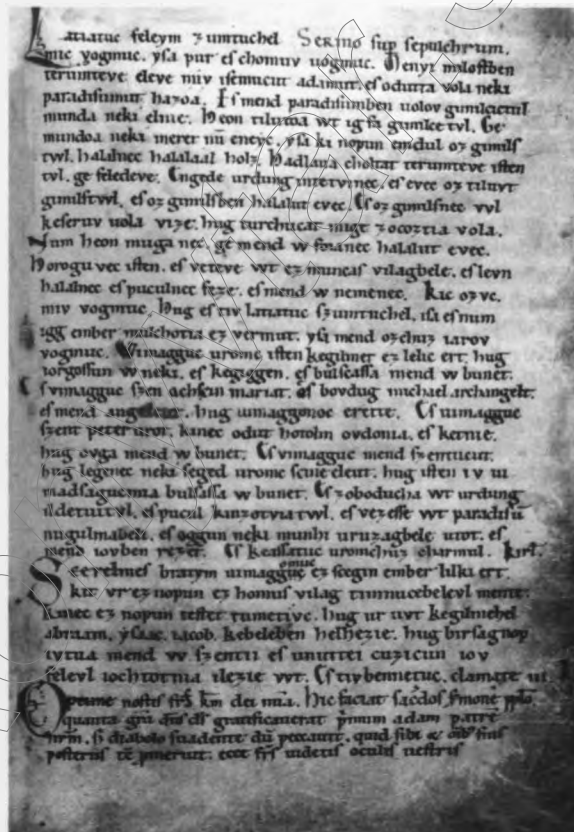 Latiatuc feleym zumtuchel Sermo sup sepulchrum.
mic vogmuc. ysa pur es chomuv uogmuc. Menyi milostben
terumteve eleve miv isemucut adamut. es odutta vola neki
paradisumut hazoa. Es mend paradisumben uolov gumilcictul
munda neki elnie. Heon tilutoa wt ig fa gumilce tvl. Ge
mundoa neki meret nu eneyc. ysa ki nopun emdul oz gumils
twl. halalnec halalaal holz. Hadlaua choltat terumteve isten
tvl. ge feledeve. Engede urdung intetvinec. es evec oz tiluvt
gumilstwl. es oz gumilsben halalut evec. Es oz gumilsnec vvl
keseruv uola vize. hug turchucat mige zocoztia vola.
Num heon muga nec. ge mend w foianec halalut evec.
Horogu vec isten. es veteve wt ez muncas vilagbele. es levn
halalnec es puculnec feze. es mend w nemenec. Kic ozvc.
miv vogmuc. Hug es tiv latiatuc szumtuchel. isa es num
igg ember mulchotia ez vermut. ysa mend ozchuz iarov
vogmuc. Wimagguc uromc isten kegilmet ez lelic ert. hug
iorgossun w neki. es kegiggen. es bulsassa mend w bunet.
Es vimagguc szen achscin mariat. es bovdug michael archangelt.
es mend angelcut. hug uimaggonoc erette. Es uimagguc
szent peter urot. kinec odut hotolm ovdonia. es ketnie.
hug ovga mend w bunet. Es vimagguc mend szentucut.
hug legenec neki seged uromc scine eleut. hug isten iv ui
madsagucmia bulsassa w bunet. Es zoboducha wt urdung
ildetuitvl. es pucul kinzotviatwl. es vezesse wt paradisu
nugulmabeli. es oggun neki munhi uruzagbele utot. es
mend iovben rezet. Es keassatuc uromchuz charmul. kirl.
Scerelmes bratym uimagguc omuc ez scegin ember lilki ert.
kit vr ez nopun ez homus vilag timnucebelevl mente.
kinec ez nopun testet tumetivc. hug ur uvt kegilmehel
abraam. ysaac. iacob. kebeleben helhezie. hug birsagnop
ivtua mend w szentii es unuttei cuzicun iov
felevl iochtotnia ilezie wt. Es tiv bennetuc. clamate iii